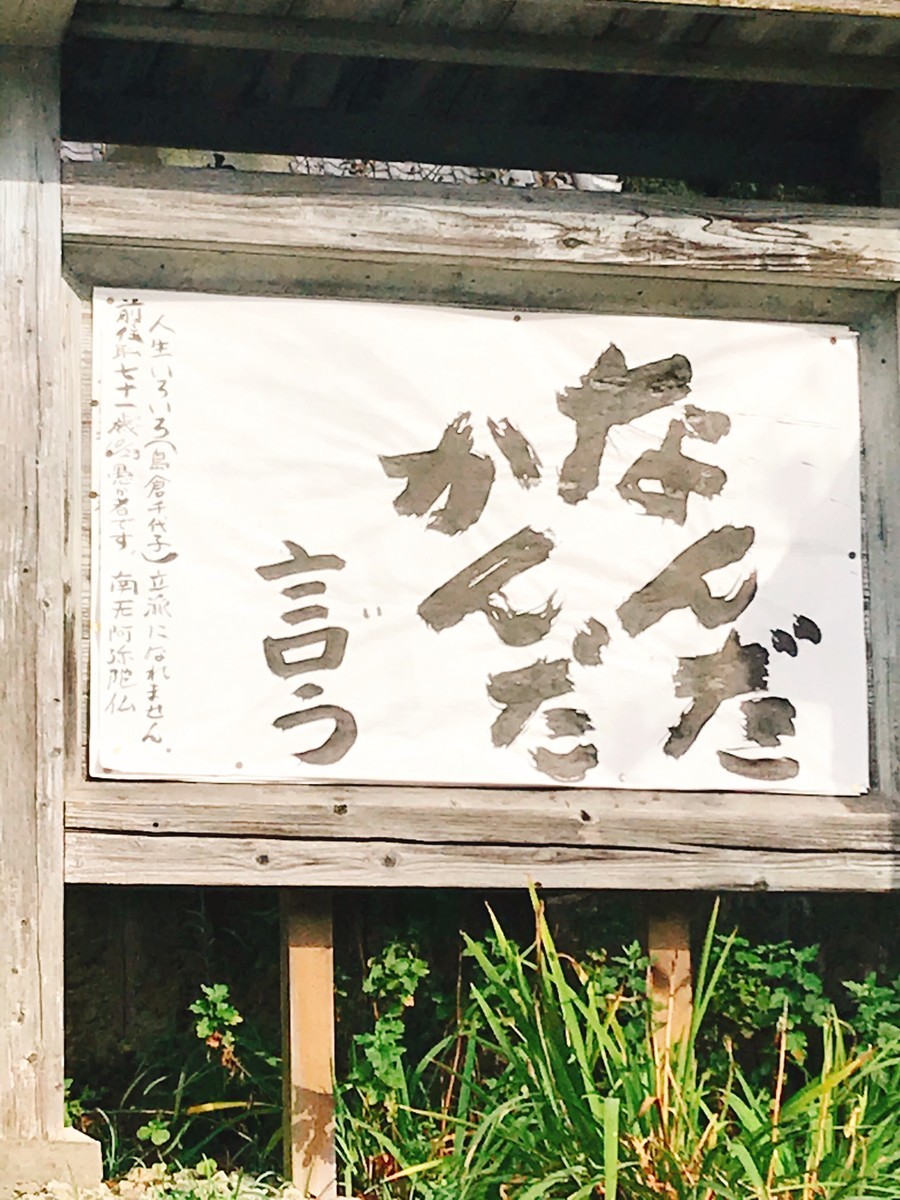 なんだ
かんだ
言う
人生いろいろ(島倉千代子)立派になれません。
前住职七十一歳 愚か者です。南无阿弥陀仏